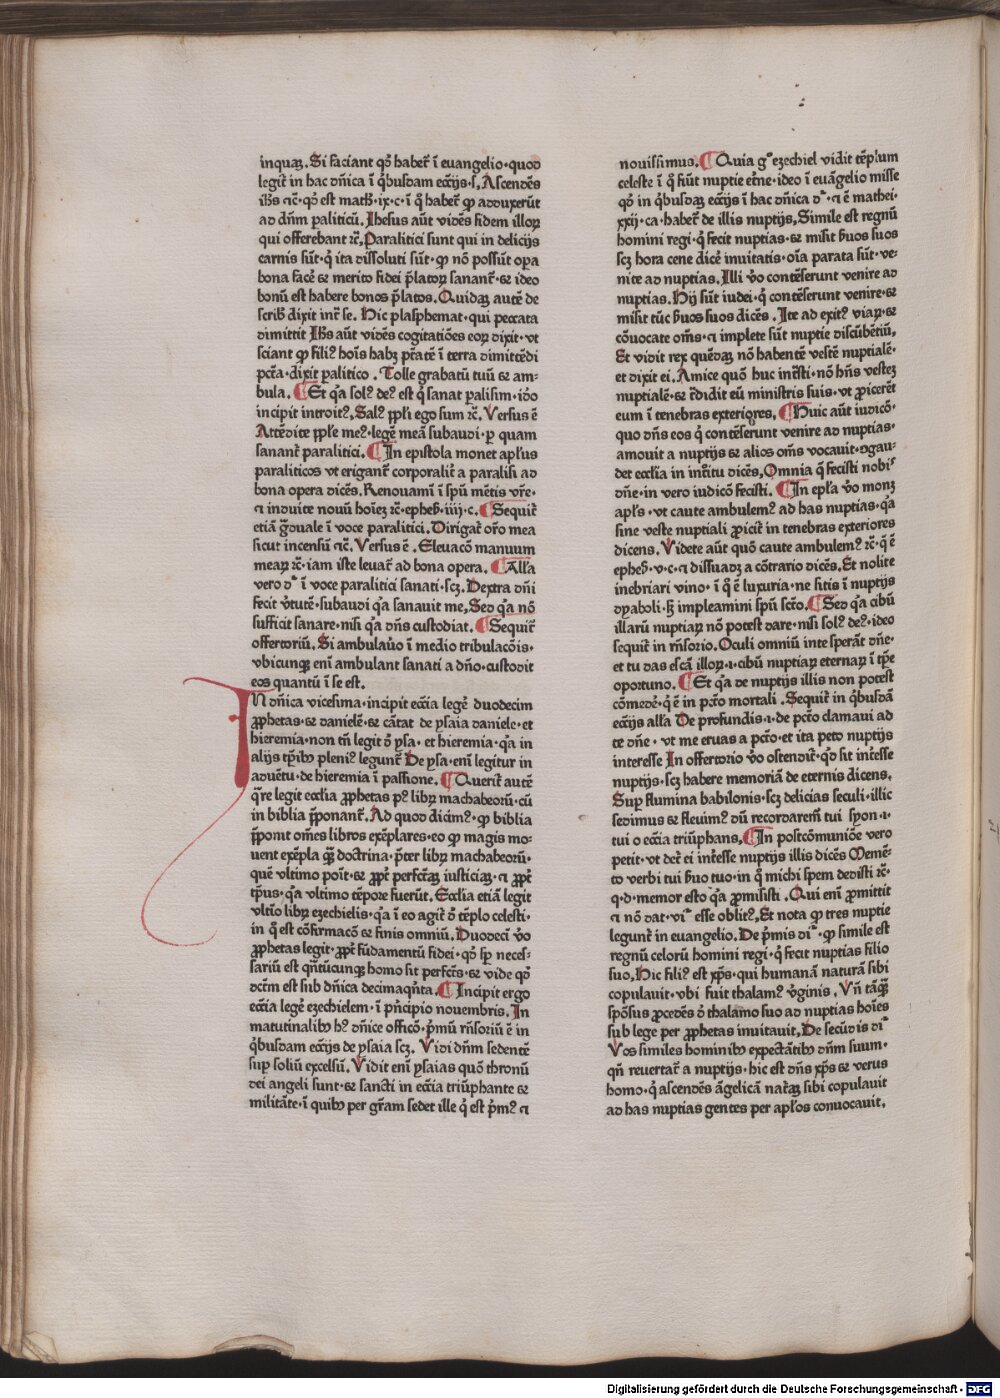 inquaꝫ. Si faciant qď haber̄ ī euangelio· quod
legit̄ in hac dn̄ica ī q̇busdam ecc̄ijs· ſ. Ascendēs
ih̄s ⁊c̄· qď est math· ix· c· ī q̇ haber̄ ꝙ adduxerūt
ad dn̄m paliticū. Ihesus aūt vidēs fidem illoꝝ
qui offerebant ⁊c̄. Paralitici sunt qui in delicijs
carnis sūt· q̇ ita dissoluti sūt· ꝙ nō possūt oꝑa
bona facē ⁊ merito fidei p̄latoꝝ sanant̄· ⁊ ideo
bonū est habere bonos p̄latos. Quidaꝫ autē de
scribꝯ dixit int̄ se. Hic plasphemat· qui peccata
dimittit Ih̄s aūt vidēs cogitatiōes eoꝝ dixit· vt
sciant ꝙ filiꝯ hoīs habꝫ p̄tatē ī terra dimittēdi
pctā· dixit palitico. Tolle grabatū tuū ⁊ am-
bula. Et q̇a solꝯ deꝯ est q̇ sanat palisim· idō
incipit introitꝯ. Salꝯ pp̄li ego sum ⁊c̄. Versus ē
Attēdite pp̄le meꝯ· legē meā subaudi· ꝑ quam
sanant̄ paralitici. In epistola monet apl̄us
paraliticos vt erigant̄ corporalit̄ a paralisi ad
bona opera dicēs. Renouamī ī spū mētis vr̄e·
⁊ induite nouū hoīeꝫ ⁊c̄· epheß· iiij· c. Sequit̄
etiā g̈duale ī voce paralitici. Dirigat̄ or̄o mea
sicut incensū ⁊c̄. Versus ē. Eleuacō manuum
meaꝝ ⁊c̄· iam iste leuat̄ ad bona opera. All̄a
vero dr̄ ī voce paralitici sanati· scꝫ. Dextra dn̄i
fecit v̇tutē· subaudi q̇a sanauit me. Sed q̇a nō
sufficit sanare· nisi q̇a dn̄s custodiat. Sequit̄
offertoriū. Si ambulaūo ī medio tribulacōis·
vbicunqꝫ enī ambulant sanati a dn̄o· custodit
eos quantū ī se est.
In dn̄ica vicesima· incipit ecc̄ia legē duodecim
ꝓphetas· ⁊ danielē· ⁊ cātat de ysaia daniele· et
hieremia· non tn̄ legit d̄ ysa· et hieremia· q̇a in
alijs tp̄ibꝯ pleniꝯ legunt̄ De ysa· enī legitur in
aduētu· de hieremia ī passione. Querit̄ autē
q̈re legit ecclia ꝓphetas pꝯ libꝝ machabeorū· cū
in biblia p̄ponant̄. Ad quod dicimꝯ· ꝙ biblia
p̄ponit om̄es libros exēplares· eo ꝙ magis mo-
uent exēpla q̈ꝫ doctrina· p̄ter libꝝ machabeorū·
quē vltimo poīt· ⁊ ꝓpt̄ perfcāꝫ iusticiaꝫ· ⁊ ꝓpt̄
tp̄us· q̇a vltimo tēpore fuerūt. Ecclia etiā legit
vltīo libꝝ ezechielis· q̇a ī eo agit̄ d̄ tēplo celesti·
in q̇ est cōfirmacō ⁊ finis omniū. Duodecī v̄o
ꝓphetas legit· ꝓpt̄ fūdamentū fidei· qď sp̄ neces-
sariū est qn̄tūcunqꝫ homo sit perfcūs· ⁊ vide qď
dcm̄ est sub dn̄ica decimaq̇nta. Incipit ergo
ecc̄ia legē ezechielem· ī p̄ncipio nouembris. In
matutinalibꝯ hꝯ dn̄ice officō· p̄mū rn̄soriū ē in
q̇busdam ecc̄ijs de ysaia scꝫ. Vidi dn̄m sedentē
suꝑ soliū excelsū. Vidit enī ysaias quō thronū
dei angeli sunt· ⁊ sancti in ecc̄ia triūphante ⁊
militāte· ī quibꝯ per gr̄am sedet ille q̇ est p̄mꝯ ⁊
nouissimus. Quia gͦ ezechiel vidit tēplum
celeste ī q̇ fiūt nuptie et̄ne· ideo ī euāgelio misse
qď in q̇busdaꝫ ecc̄ijs ī hac dn̄ica dr̄· ⁊ ē mathei·
xxij· ca· haber̄ de illis nuptijs. Simile est regnū
homini regi· q̇ fecit nuptias· ⁊ misit ẜuos suos
scꝫ hora cene dicē inuitatis· oīa parata sūt· ve-
nite ad nuptias. Illi v̄o contēserunt venire ad
nuptias. Hij sūt iudei· q̇ contēserunt venire· ⁊
misit tūc ẜuos suos dicēs. Ite ad exitꝯ viaꝝ· ⁊
cōuocate om̄s· ⁊ implete sūt nuptie discūbētiū.
Et vidit rex quēdaꝫ nō habentē vestē nuptialē·
et dixit ei. Amice quō huc int̄sti· nō hn̄s vesteꝫ
nuptialē· ⁊ t̄didit eū ministris suis· vt ꝓicerēt
eum ī tenebras exteriores. Huic aūt iudicō·
quo dn̄s eos q̇ contēserunt venire ad nuptias·
amouit a nuptijs ⁊ alios om̄s vocauit· ɔgau-
det ecclia in int̄itu dicēs. Omnia q̄ fecisti nobis
dn̄e· in vero iudicō fecisti. In epl̄a v̄o monꝫ
apl̄s· vt caute ambulemꝯ ad has nuptias· q̇a
sine veste nuptiali ꝓicit̄ in tenebras exteriores
dicens. Videte aūt quō caute ambulemꝯ ⁊c̄· q̄ ē
epheß· v· c· ⁊ dissuadꝫ a cōtrario dicēs. Et nolite
inebriari vino· ī q̇ ē luxuria· ne sitis ī nuptijs
dyaboli· sꝫ impleamini spū scto. Sed q̇a cibū
illarū nuptiaꝝ nō potest dare· nisi solꝯ deꝯ· ideo
sequit̄ in rn̄sorio. Oculi omniū in te sperāt dn̄e·
et tu das escā illoꝝ· ⁊· cibū nuptiaꝝ eternaꝝ ī tp̄e
oportuno. Et q̇a de nuptijs illis non potest
cōmedē· q̇ ē in pctō mortali. Sequit̄ in q̇busdā
ecc̄ijs all̄a De profundis· ⁊· de pctō clamaui ad
te dn̄e· vt me eruas a pctō· et ita peto nuptijs
interesse In offertorio v̄o ostendit̄· qd sit int̄esse
nuptijs· scꝫ habere memoriā de eternis dicens.
Suꝑ flumina babilonis· scꝫ delicias seculi· illic
sedimus ⁊ fleuimꝯ dū recordarem̄ tui syon· ⁊·
tui o ecc̄ia triūphans. In postcōmuniōe vero
petit· vt det̄ ei int̄esse nuptijs illis dicēs Memē-
to verbi tui ẜuo tuo· in q̇ michi spem dedisti ⁊c̄·
q· d· memor esto q̇a ꝓmisisti. Qui enī ꝓmittit
⁊ nō dat· vr̄ esse oblitꝯ. Et nota ꝙ tres nuptie
legunt̄ in euangelio. De p̄mis dr̄· ꝙ simile est
regnū celorū homini regi· q̇ fecit nuptias filio
suo. Hic filiꝯ est xp̄s· qui humanā naturā sibi
copulauit· vbi fuit thalamꝯ v̇ginis. Vn̄ tāq̈ꝫ
spōsus ꝓcedēs d̄ thalamo suo ad nuptias hoīes
sub lege per ꝓphetas inuitauit. De secūdis dr̄
Vos similes hominibꝯ expectātibꝯ dn̄m suum·
qn̄ reuertat̄ a nuptijs· hic est dn̄s xp̄s ⁊ verus
homo· q̇ ascendēs āgelicā natꝫ sibi copulauit
ad has nuptias gentes per apl̄os conuocauit.
Digitalisierung gefördert durch die Deutsche Forschungsgemeinschaft - DFG